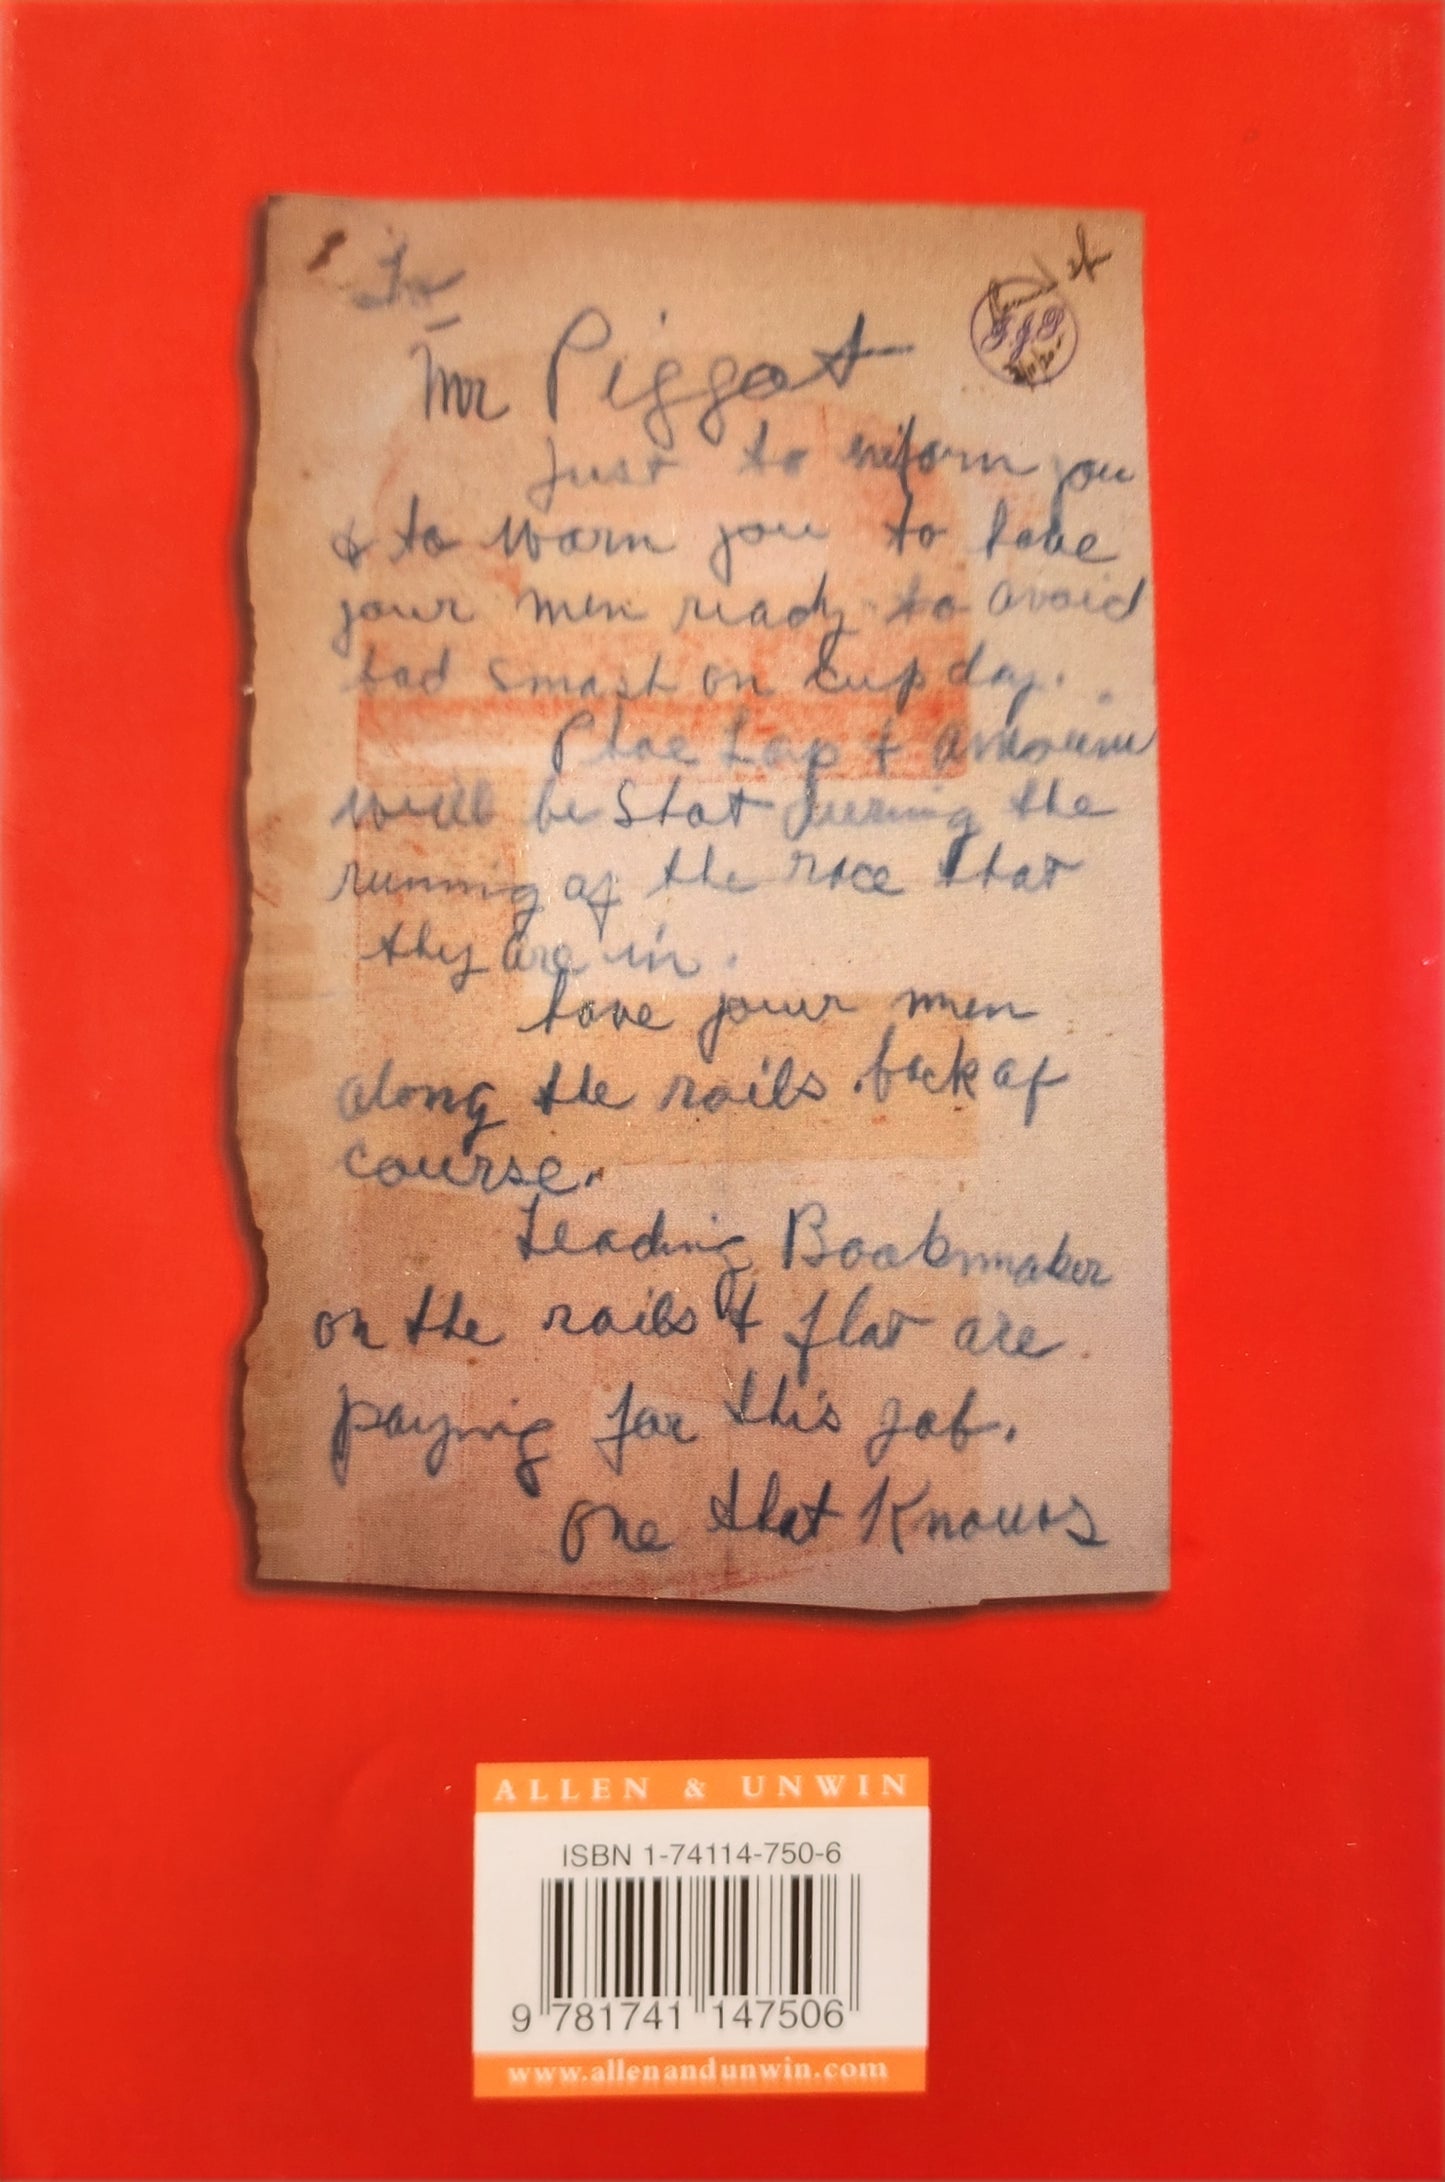 To
Mr Piggot
Just to inform you
& to warn you to have
your men ready to avoid
bad smash on Cup day.
Phar Lap & Amounis
will be Shot during the
running of the race that
they are in.
have your men
along the rails back of
course.
Leading Bookmaker
on the rails & flat are
paying for this job.
one that Knows
ALLEN & UNWIN
ISBN 1-74114-750-6
9 781741 147506
www.allenandunwin.com